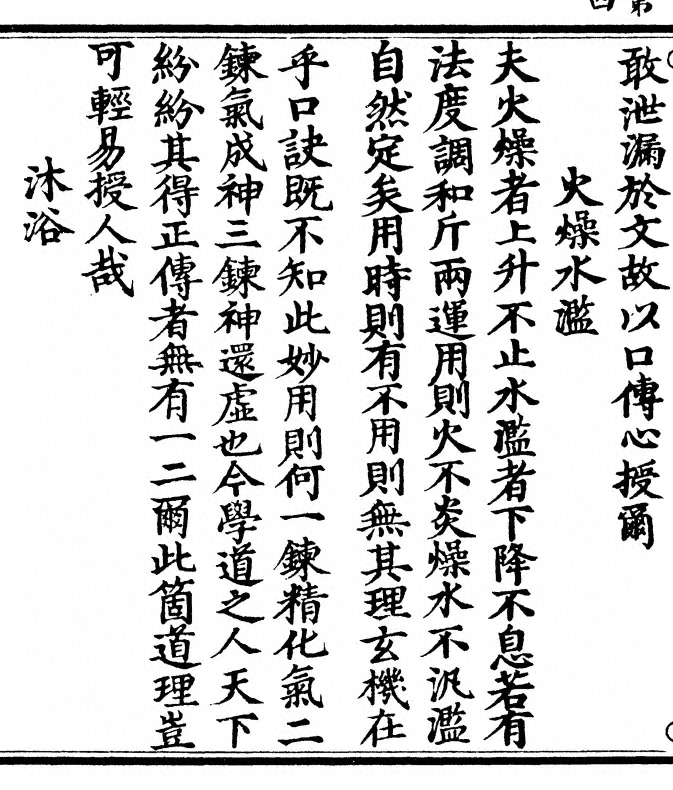 敢泄漏於文故以口傳心授爾
火燥水濫
夫火燥者上升不止水濫者下降不息若有
法度調和斤兩運用則火不炎燥水不汎濫
自然定矣用時則有不用則無其理玄機在
乎口訣既不知此妙用則何一鍊精化氣二
鍊氣成神三鍊神還虛也今學道之人天下
紛紛其得正傳者無有一二爾此箇道理豈
可輕易授人哉
沐浴